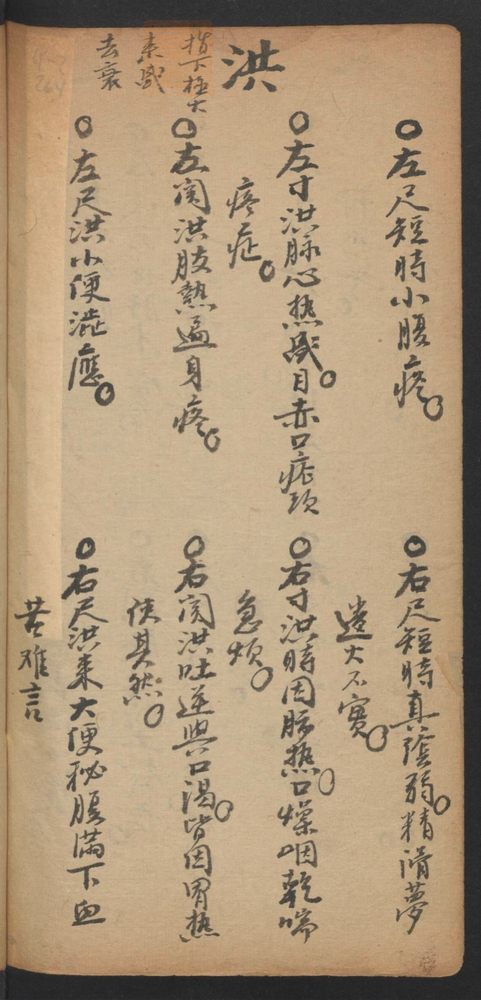 左尺短時小腹疼
右尺短時真陰弱精滑夢
遺火不實
洪
指下極大
来盛
去衰
左寸洪脉心热盛目赤口疮頭
疼症
右寸洪時因肺热口燥咽乾喘
急煩
左関洪肢熱遍身疼
右関洪吐逆與口渴皆因胃热
使其然
左尺洪小便澁應
右尺洪来大便秘腹满下血
苦难言